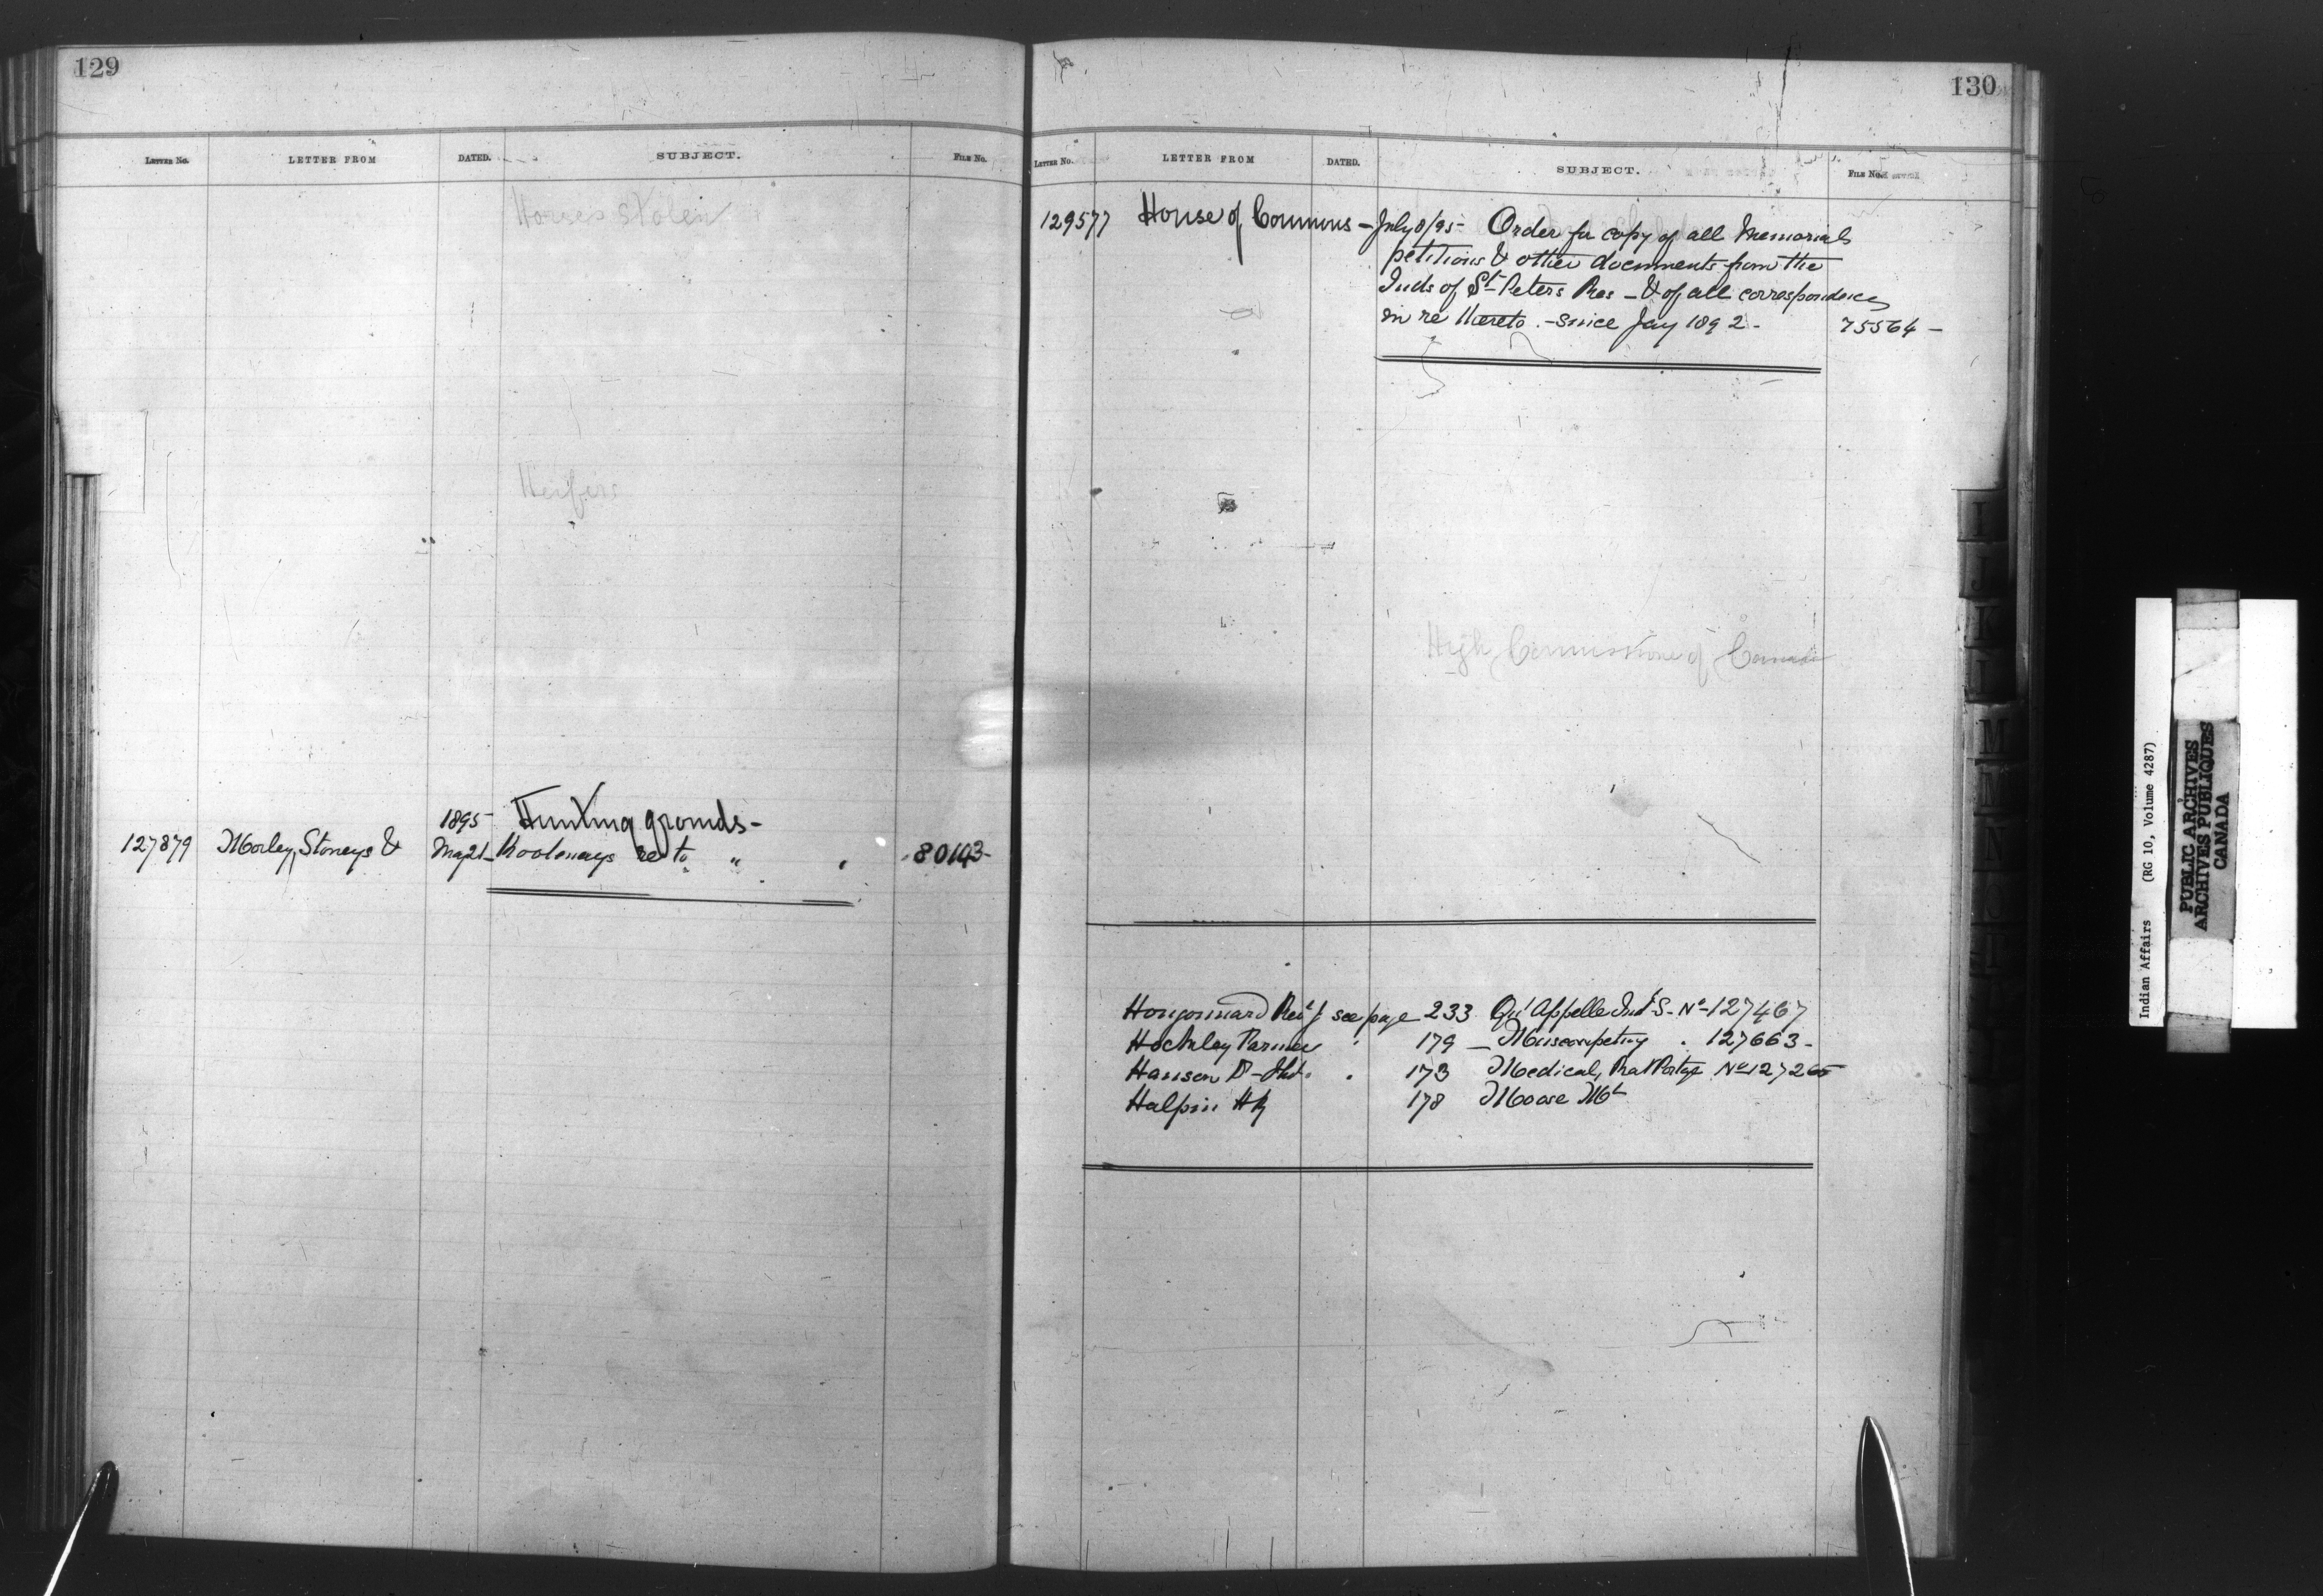 129
LETTER No. LETTER FROM DATED. SUBJECT. FILE No.
Horses stolen
Heifers
1895 Hunting grounds-
127879 Morley, Stoneys & May 21- Kootenays re to " " 80143-
130
LETTER No. LETTER FROM DATED. SUBJECT. FILE No.
129577 House of Commons - July 8/95- Order for copy of all Memorials
petitions & other documents from the
Inds of St Peters Res - & of all correspondence
in re thereto. - since Jay 1892- 75564-
High Commissioner of Canada
Hougonnard Revd J see page 233 Qu'Appelle Ind S- No-127467
Hockley Farmer " 179 - Muscowpetung . 127663-
Hanson D- . 173 Medical, Rat Portage No 12726
Halpin H 178 Moose Mt
I
J
K
L
M
M
N
Indian Affairs (RG 10, Volume 4287)
PUBLIC ARCHIVES
ARCHIVES PUBLIQUES
CANADA